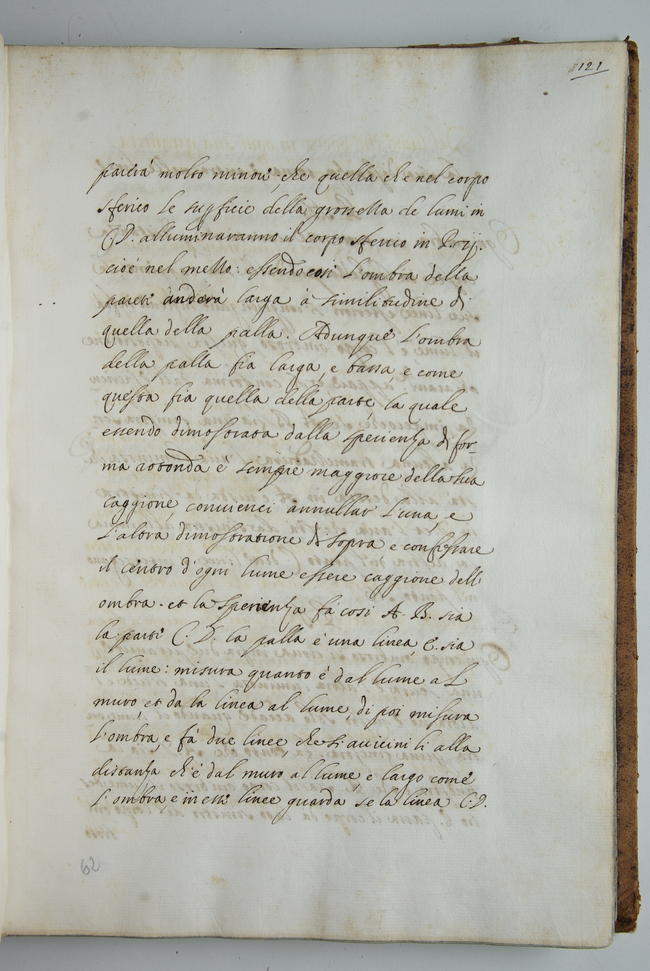 121
parerà molto minore, che quella che nel corpo
sferico le supficie della grossetta de lumi in
C.D. alluminaranno il corpo sferico in
cioè nel mezzo: essendo così l'ombra della
parete anderà larga à similitudine di
quella della palla. Adunque l'ombra
della palla fia larga, e bassa e come
questa fia quella della parete, la quale
essendo dimostrata dalla sperienza di for-
ma rotonda è sempre maggiore della sua
caggione, convienci annullar l'una, e
l'altra dimostratione di sopra e confessare
il centro d'ogni lume essere caggione dell'
ombra. et la sperienza fà così A. B. sia
la parete C. D. la palla è una linea, E. sia
il lume: misura quanto è dal lume al
muro, et da la linea al lume, di poi misura
l'ombra, e fà due linee, che si avicinili alla
distanza ch'è dal muro al lume, e largo come
l'ombra e in esse linee guarda se la linea C.D.
62